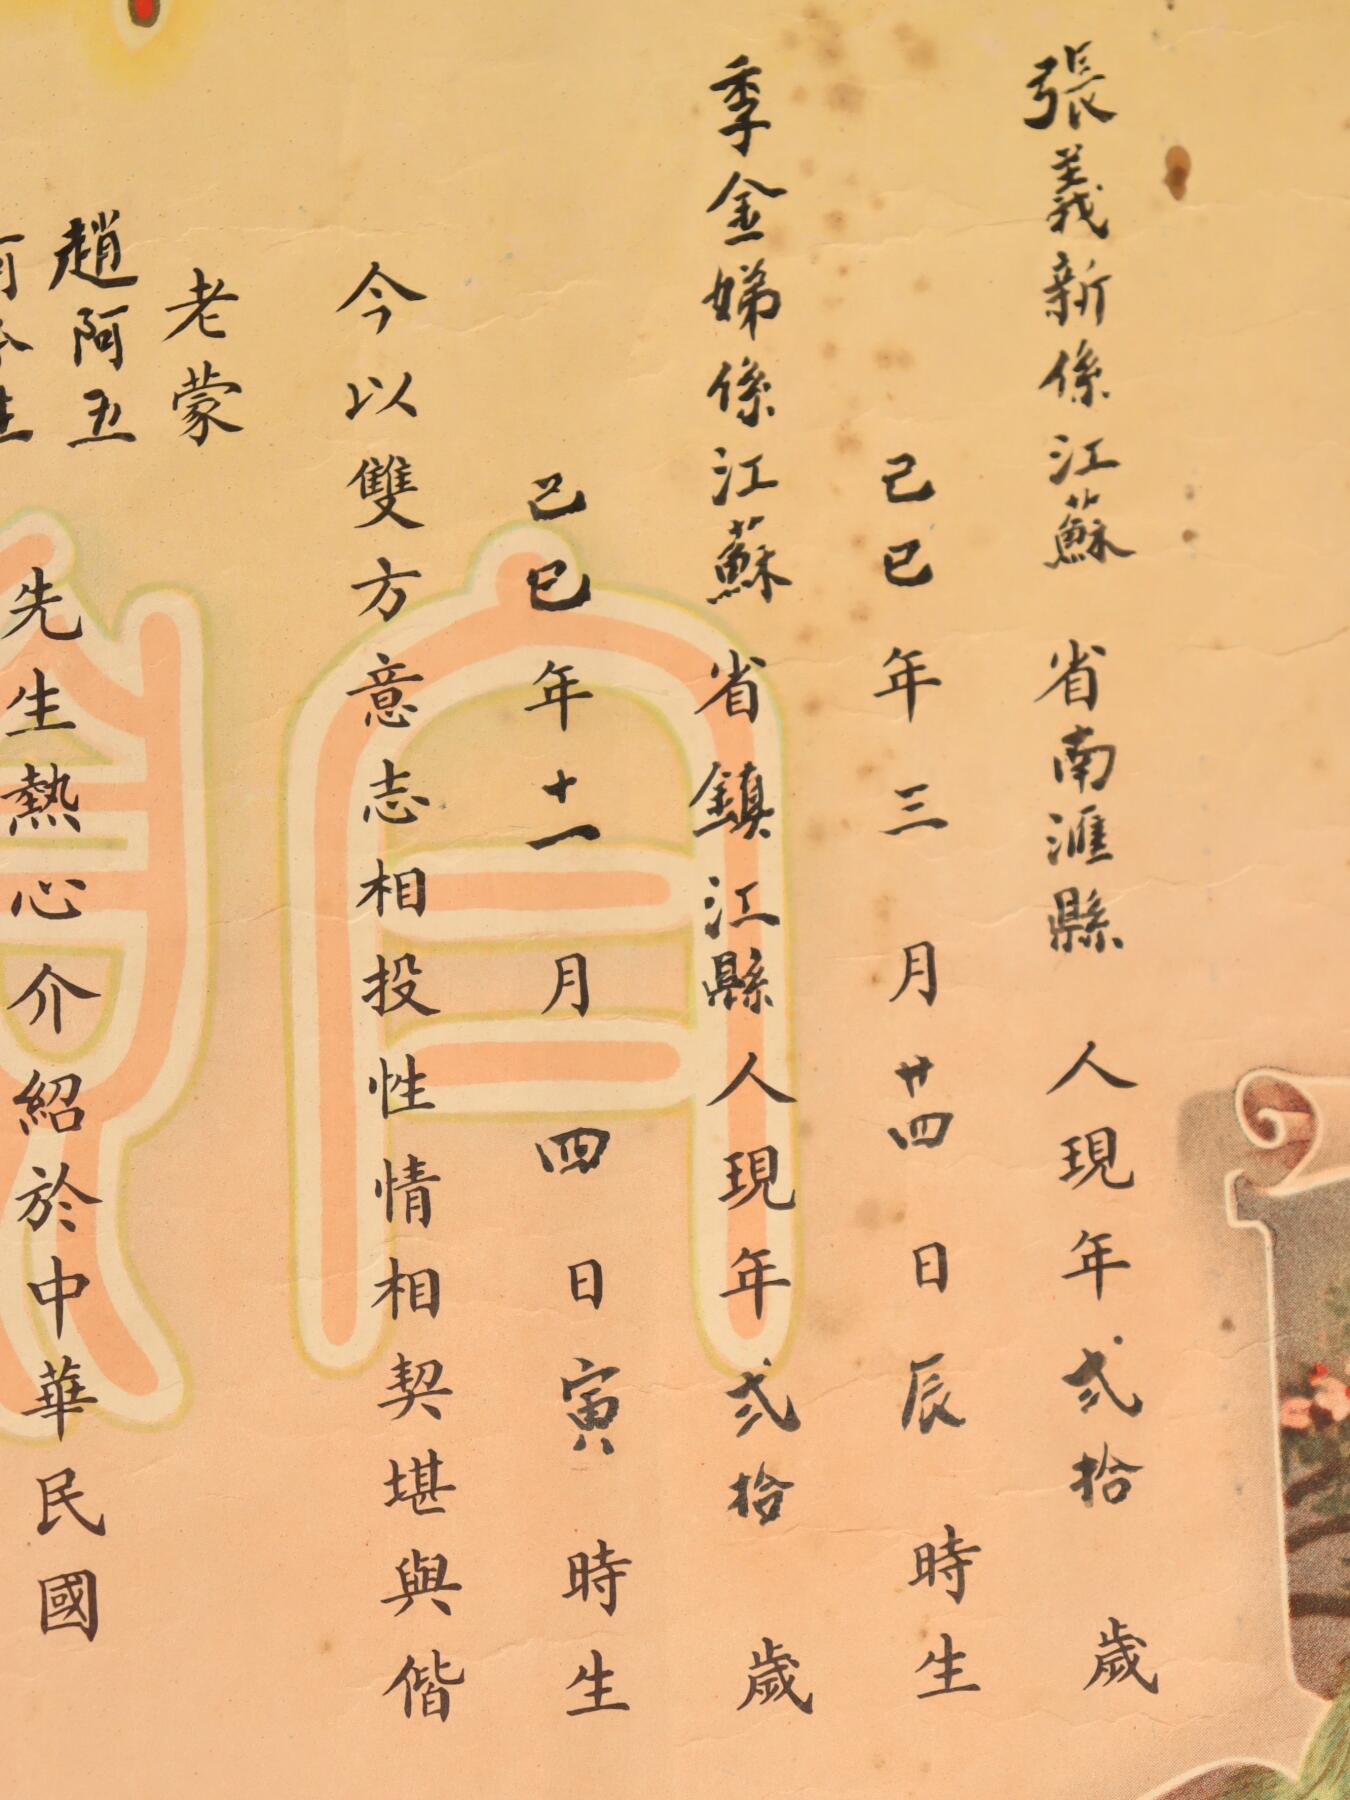 張義新係江蘇省南滙縣人現年弍拾歲
己巳年三月廿四日辰時生
季金娣係江蘇省鎮江縣人現年弍拾歲
己巳年十一月四日寅時生
今以雙方意志相投性情相契堪與偕
老蒙
趙阿五
先生熱心介紹於中華民國